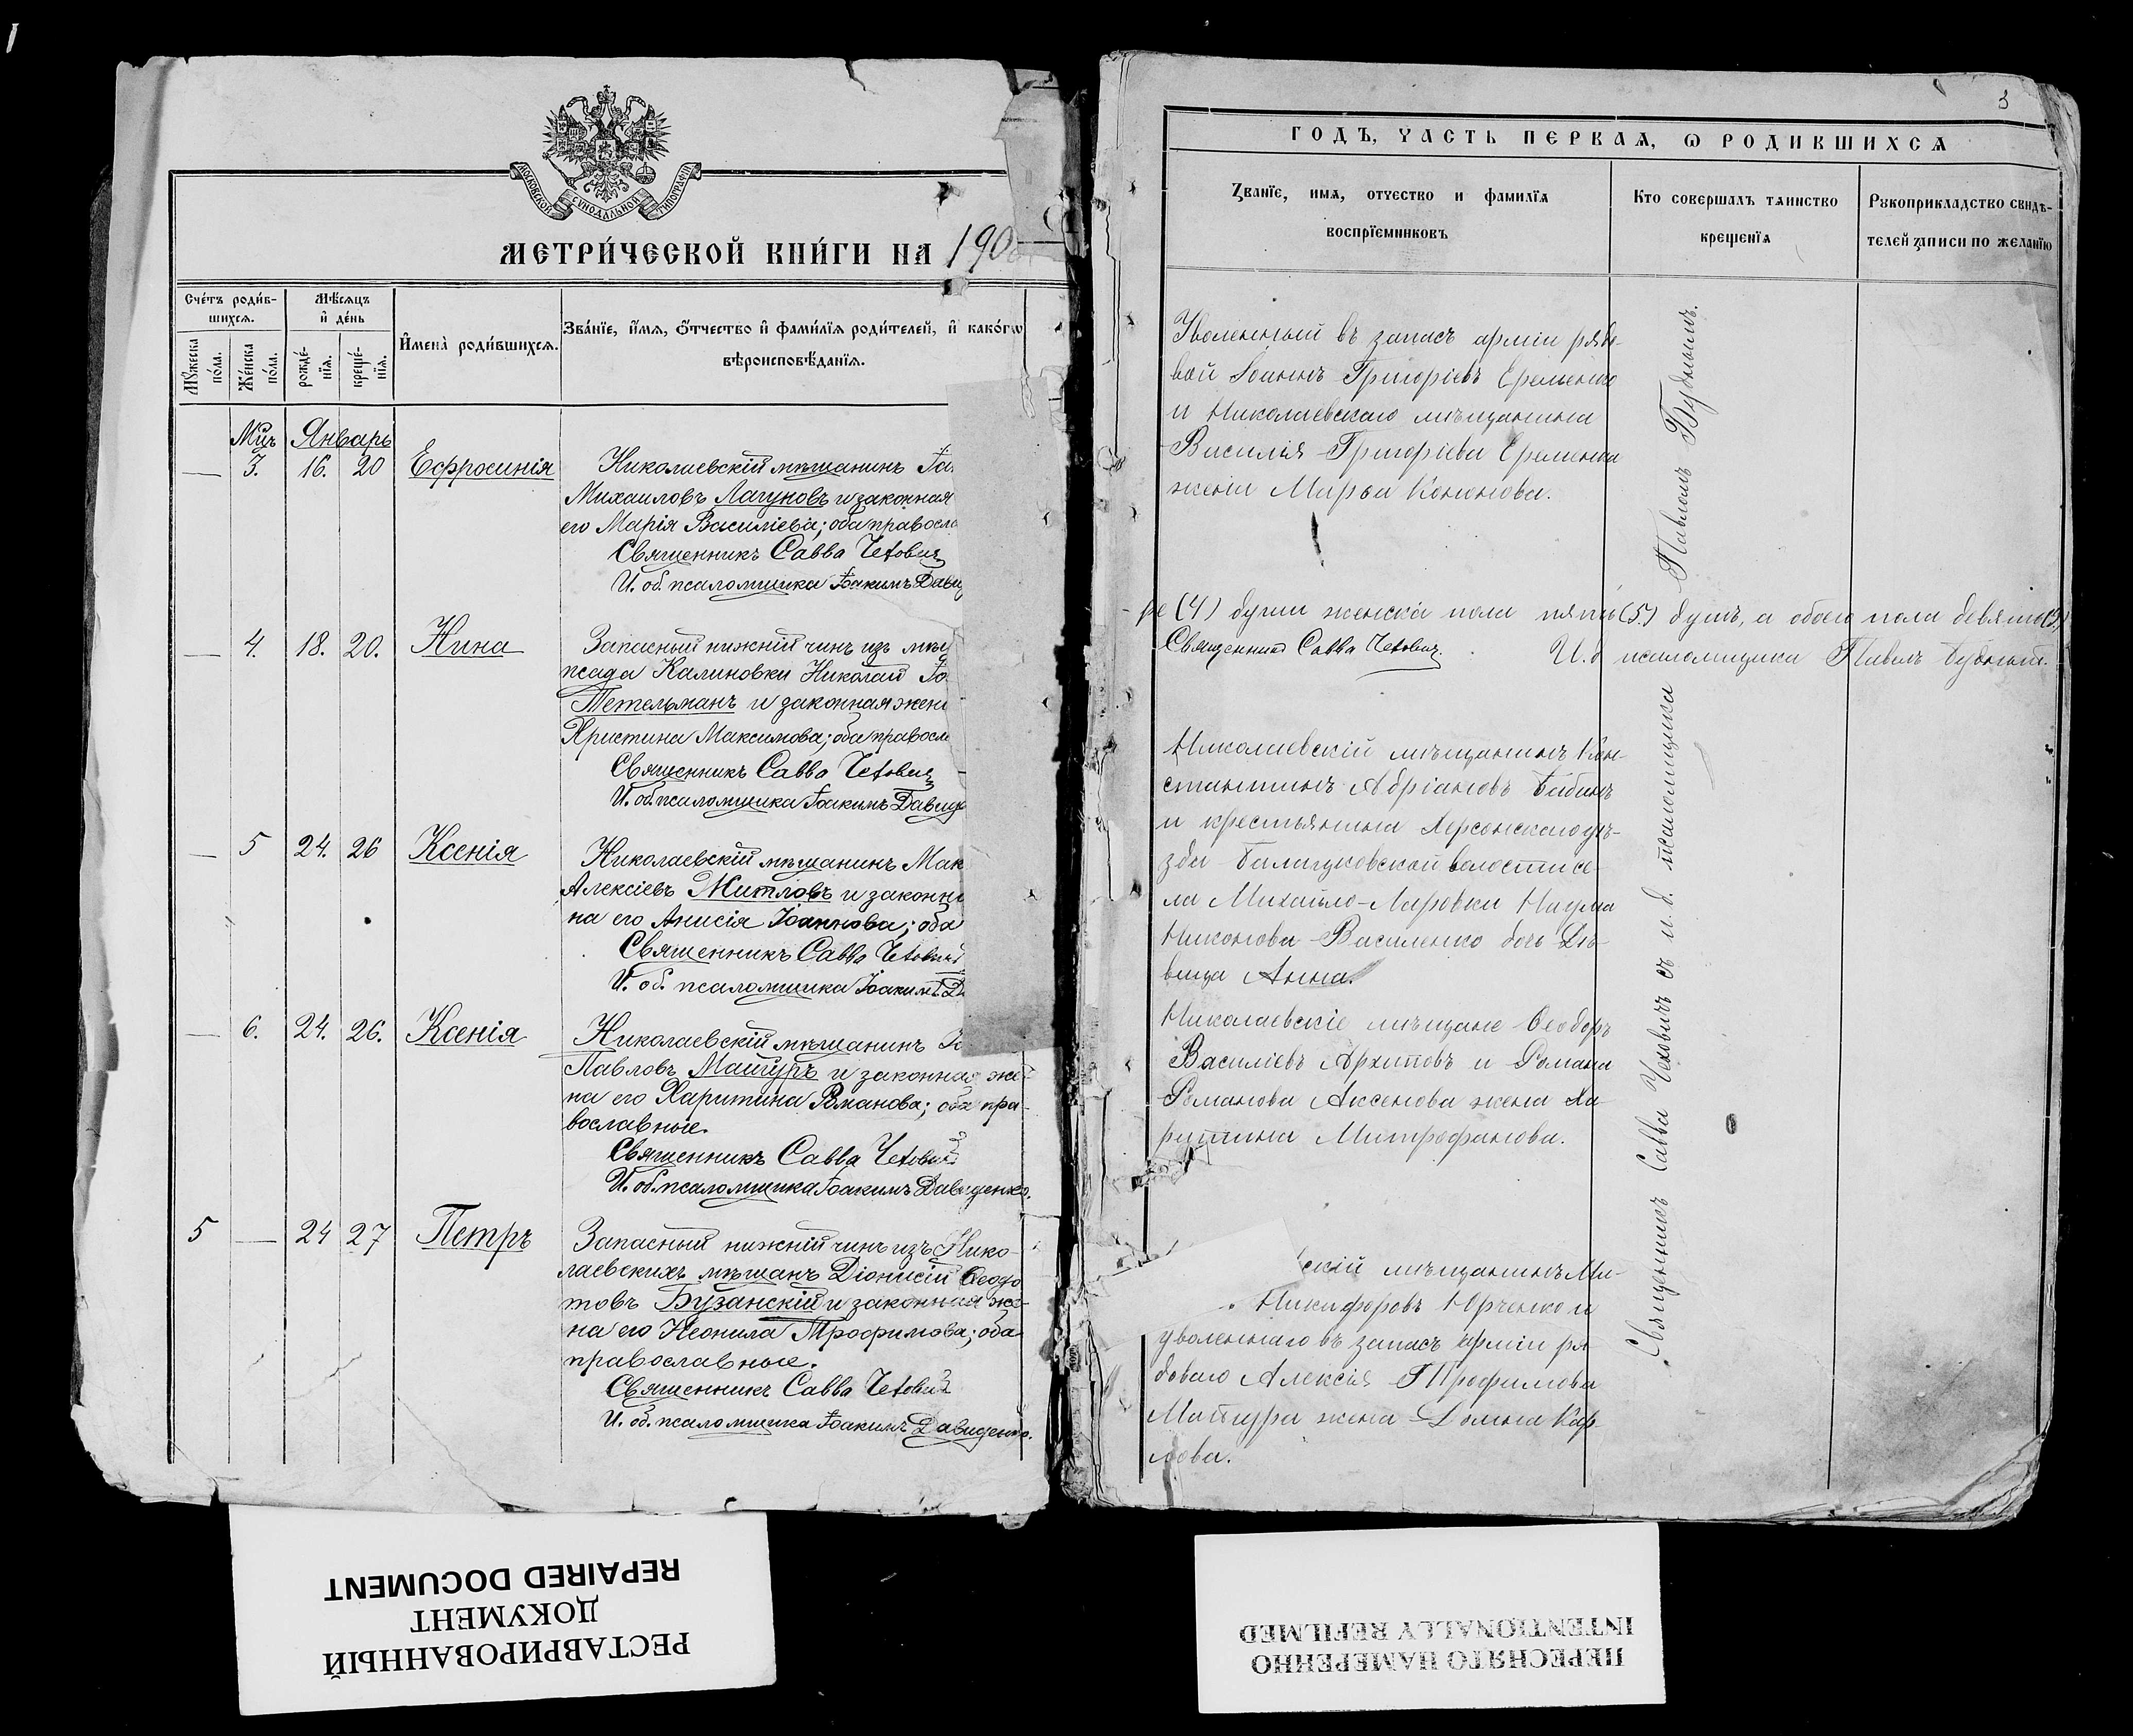 МОСКОВСКОЙ СѴНОДАЛЬНОЙ ТИПОГРАФІИ
МЕТРИ́ЧЕСКОЙ КНИ́ГИ НА 190
Сче́тъ роди́в-
шихсѧ.
Мѣ́сѧцъ
и҆ де́нь
И҆мена̀ роди́вшихсѧ.
Зва́нїе, и҆́мѧ, ѻ҆́тчество и҆ фами́лїѧ роди́телей, и҆ како́гѡ
вѣроисповѣ́данїѧ.
Мꙋ́жеска
по́ла.
Же́нска
по́ла.
рожде́-
нїѧ.
креще́-
нїѧ.
Мцъ Январь
— 3. 16. 20 Ефросинія Николаевскій мѣщанинъ
Михаиловъ Лагуновъ и законная
его Марія Василіева; оба правосла
Священникъ Савва Чехович
И. об. псаломщика Іоакимъ Давид
— 4. 18. 20. Нина Запасный нижній чинъ изъ мѣщ
псада Калиновки Николай Іо
Тетельманъ и законная жен
Христина Максимова; оба правосл
Священникъ Савва Чехович
И. об. псаломщика Іоакимъ Давид
— 5 24. 26 Ксенія Николаевскій мѣщанинъ Мак
Алексіевъ Житловъ и законн
на его Анисія Іоаннова; оба
Священникъ Савва Чехович
И. об. псаломщика Іоакимъ Д
— 6. 24. 26. Ксенія Николаевскій мѣщанинъ
Павловъ Мацуръ и законная же-
на его Харитина Романова; оба пра-
вославные.
Священникъ Савва Чехович
И. об. псаломщика Іоакимъ Давиденко.
5 — 24 27 Петръ Запасный нижній чинъ изъ Нико-
лаевскихъ мѣщанъ Діонисій Ѳеодо
товъ Бузанскій и законная же-
на его Неонила Трофимова; оба
православные.
Священникъ Савва Чехович
И. об. псаломщика Іоакимъ Давиденко.
3
ГОДЪ, ЧАСТЬ ПЕРВАѦ, Ѡ РОДИВШИХСѦ
Званїе, имѧ, отчество и фамилїѧ
воспрїемниковъ
Кто совершалъ таинство
крещенїѧ
Рꙋкоприкладство свидѣ-
телей записи по желанїю
Уволенный въ запасъ арміи рядо-
вой Іоаннъ Григоріевъ Еременко
и Николаевскаго мѣщанина
Василія Григоріева Еременка
жена Марѳа Кононова.
ре (4) души женска пола пять (5) душъ, а обоего пола девять (9)
Священник Савва Чехович. И. д псаломщика Павелъ Будный.
Николаевскій мѣщанинъ Кон-
стантинъ Адріановъ Бабинъ
и крестьянина Херсонскаго уѣ-
зда Балацковской волости се-
ла Михайло-Ларовки Наума
Никонова Василенко дочь дѣ-
вица Анна.
Николаевскіе мѣщане Ѳеодоръ
Василіевъ Архиповъ и Романа
Романова Аксенова жена Ха-
ритина Митрофанова.
скій мѣщанинъ Ми-
Никифоровъ Юрченко и
уволеннаго въ запасъ арміи ря-
доваго Алексія Трофимова
Мацура жена Домна Кар-
пова.
Священникъ Савва Чеховичъ съ и. д. псаломщика Павломъ Буднымъ.
РЕСТАВРИРОВАННЫЙ
ДОКУМЕНТ
REPAIRED DOCUMENT
ПЕРЕСНЯТО НАМЕРЕННО
INTENTIONALLY REFILMED